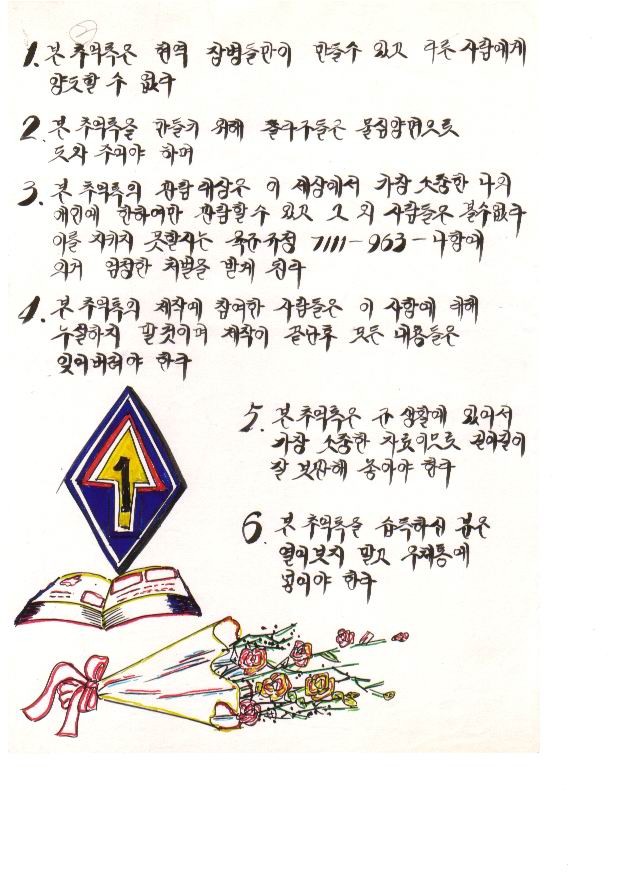 2
1. 본 추억록은 현역 장병들만이 만들수 있고 다른 사람에게
양도할 수 없다
2. 본 추억록을 만들기 위해 쫄다구들은 물심양면으로
도와 주어야 하며
3. 본 추억록의 관람대상은 이 세상에서 가장 소중한 나의
애인에 한하여만 관람할수 있고 그 외 사람들은 볼수없다
이를 지키지 못할시는 육군규정 7111-963-나항에
의거 엄정한 처벌을 받게 된다
4. 본 추억록의 제작에 참여한 사람들은 이 사항에 대해
누설하지 말것이며 제작이 끝난후 모든 내용들은
잊어버려야 한다
1
5. 본 추억록은 군 생활에 있어서
가장 소중한 자료이므로 길이길이
잘 보관해 놓아야 한다
6. 본 추억록을 습득하신 분은
열어보지 말고 우체통에
넣어야 한다